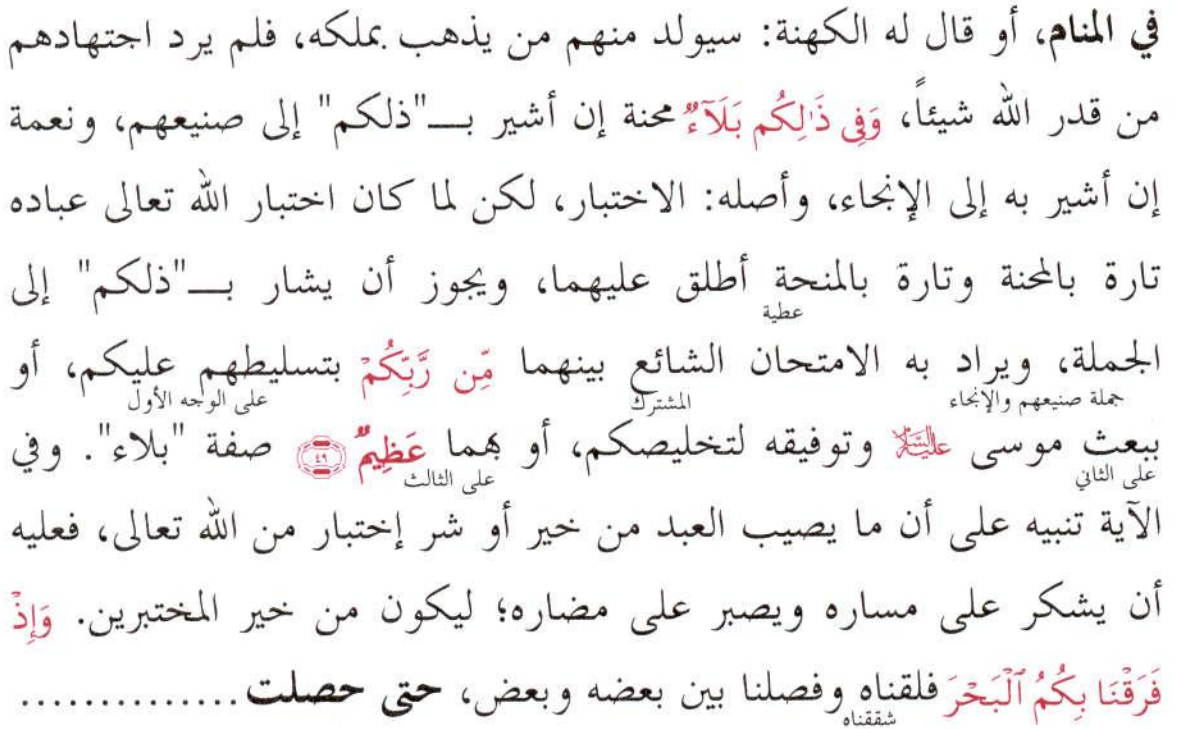 في المنام، أو قال له الكهنة: سيولد منهم من يذهب بملكه، فلم يرد اجتهادهم
من قدر الله شيئاً، وَفِى ذَٰلِكُم بَلَآءٌ محنة إن أشير بــ"ذلكم" إلى صنيعهم، ونعمة
إن أشير به إلى الإنجاء، وأصله: الاختبار، لكن لما كان اختبار الله تعالى عباده
تارة بالمحنة وتارة بالمنحة أطلق عليهما، ويجوز أن يشار بــ"ذلكم" إلى
عطية
الجملة، ويراد به الامتحان الشائع بينهما مِّن رَّبِّكُمْ بتسليطهم عليكم، أو
جملة صنيعهم والإنجاء المشترك على الوجه الأول
ببعث موسى عليه السلام وتوفيقه لتخليصكم، أو بهما عَظِيمٌ ٤٩ صفة "بلاء". وفي
على الثاني على الثالث
الآية تنبيه على أن ما يصيب العبد من خير أو شر إختبار من الله تعالى، فعليه
أن يشكر على مساره ويصبر على مضاره؛ ليكون من خير المختبرين. وَإِذْ
فَرَقْنَا بِكُمُ ٱلْبَحْرَ فلقناه وفصلنا بين بعضه وبعض، حتى حصلت..............
شققناه